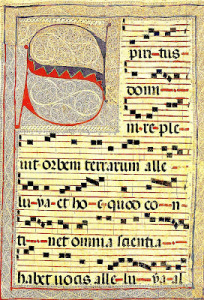 Spiritus
domi
ni reple
uit orbem terrarum alle
lu-ya-et ho-c-quod co-n
ti-net omnia scientia-
habet uocis alle-lu-ya-al